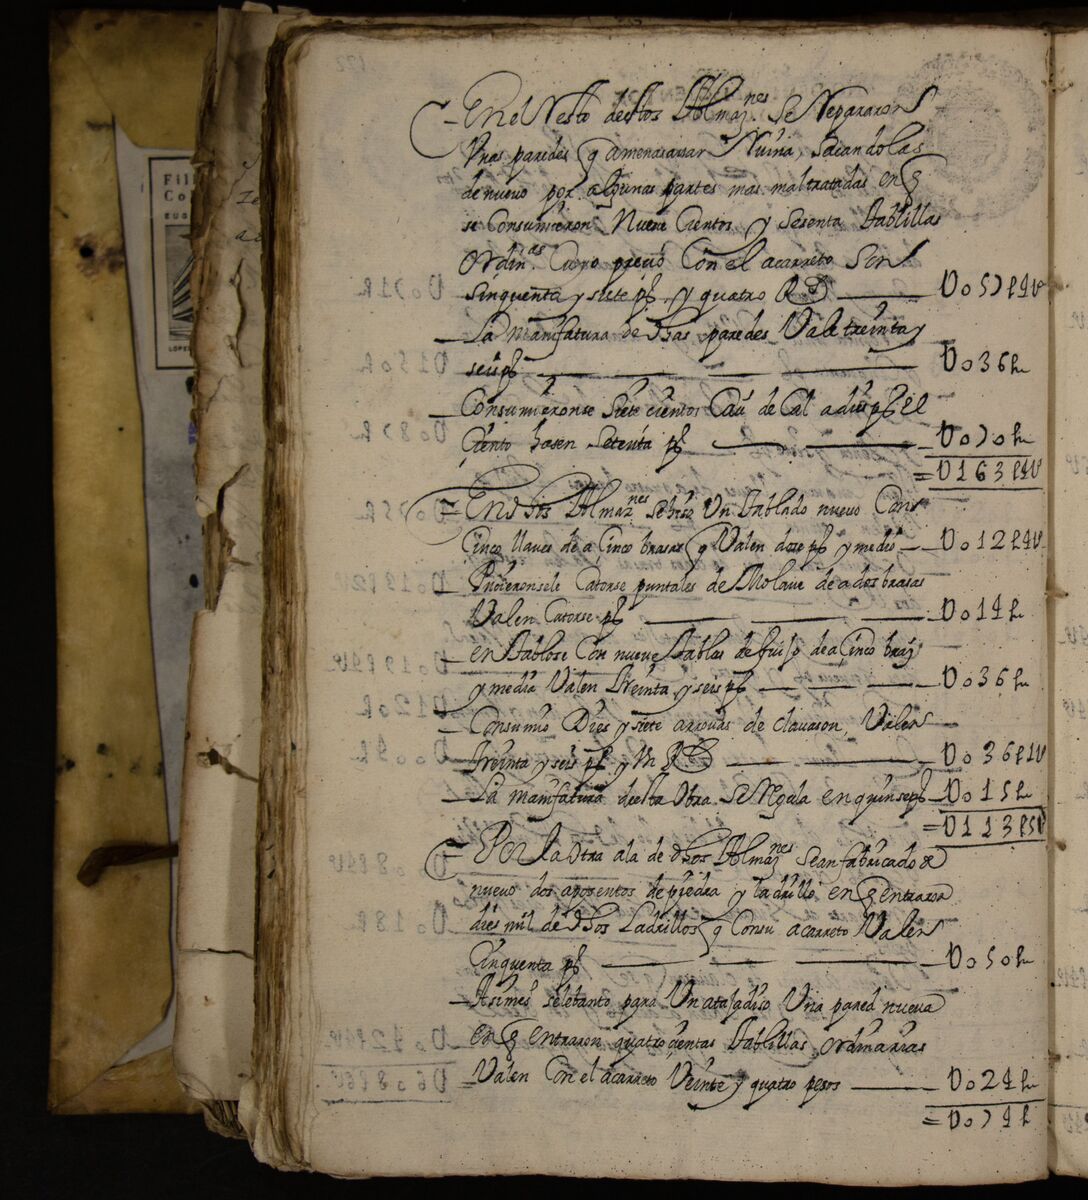 En el Resto destos Almaz.nes se Repararon
Unas paredes q amenasavan Ruina, sacandolas
de nuevo por algunas partes mas maltratadas en q
se Consumieron Nueve Cientos y Sesenta Tablillas
Ordin.as Cuyo precio Con el acarreto Son
Sinquenta y siete ps. y quatro Rs U057p4U
La manifatura de dhas paredes Vale treinta y
seis ps U036p
Consumieronse Siete cientos Cau de Cal a dies ps El
Ciento hasen Setenta ps U070p
=U163p4U
=En dhos Almaz.nes se hiso Un Tablado nuevo Con
Cinco llaves de a Cinco brasas q Valen dose ps y medio U012p4U
Pusieronsele Catorse puntales de Molave de a dos brasas
Valen Catorse ps U014p
enTablose Con nueve Tablas de guijo de a Cinco braz
y media Valen Treinta y seis ps U036p
Consumio Dies y siete arrovas de clavason, Valen
Treinta y seis ps y Un Rl U036p1U
La manifatura desta Obra Se Regula en quinse ps U015p
=U113p5U
=Por la otra ala de dhos Almaz.nes Sean fabricado de
nuevo dos aposentos de piedra y ladrillo en q entraron
dies mil de dhos Ladrillos q Con su acarreto Valen
Cinquenta ps U050p
Asimes.o selebanto para Un atajadiso Una pared nueva
en q entraron quatro cientas Tablillas ordinarias
Valen Con el acarreto Veinte y quatro pesos U024p
=U074p
Fil
Co